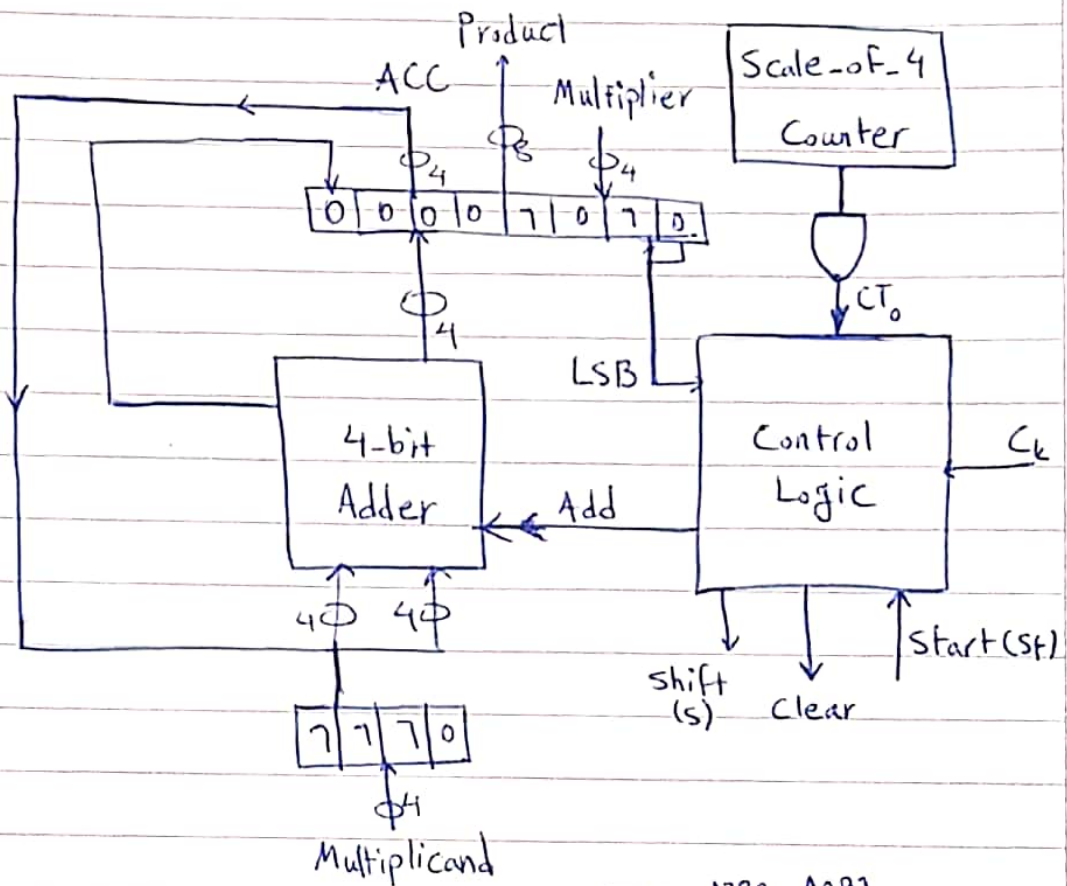 Product
ACC
Multiplier
Scale-of-4
Counter
4
8
4
0 0 0 0 1 0 1 0
CT₀
4
LSB
4-bit
Adder
Add
Control
Logic
Ck
4 4
Shift
(S)
Clear
Start (St)
1 1 1 0
4
Multiplicand